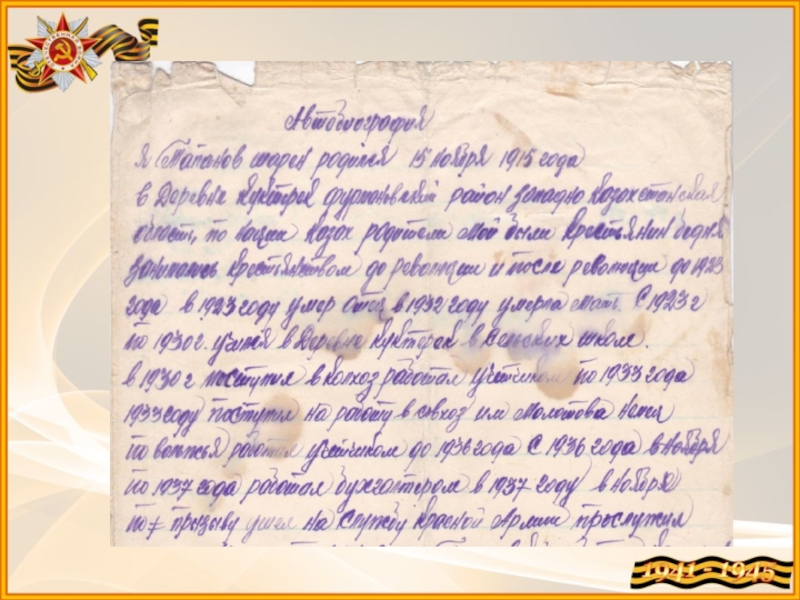 Автобиография
Я Тапанов родился 15 ноября 1915 года
в Деревне Куктерек фурмоновский район западно Казахстанская
область, по нации Казах родители мой были Крестьянин бедня
занимались Крестьянством до революции и после революции до 1923
года в 1923 году умер отец в 1932 году умерла мать. С 1923 г
по 1930 г. учился в Деревне Куктерек в Сельских школе.
в 1930 г поступил в колхоз работал учетчиком по 1933 года
1933 году поступил на работу в совхоз им Молотова
работал учетчиком до 1936 года С 1936 года в Ноября
по 1937 года работал бухгалтером в 1937 году в Ноября
по призыву ушел на службу Красной Армии прослужил
1941 - 1945